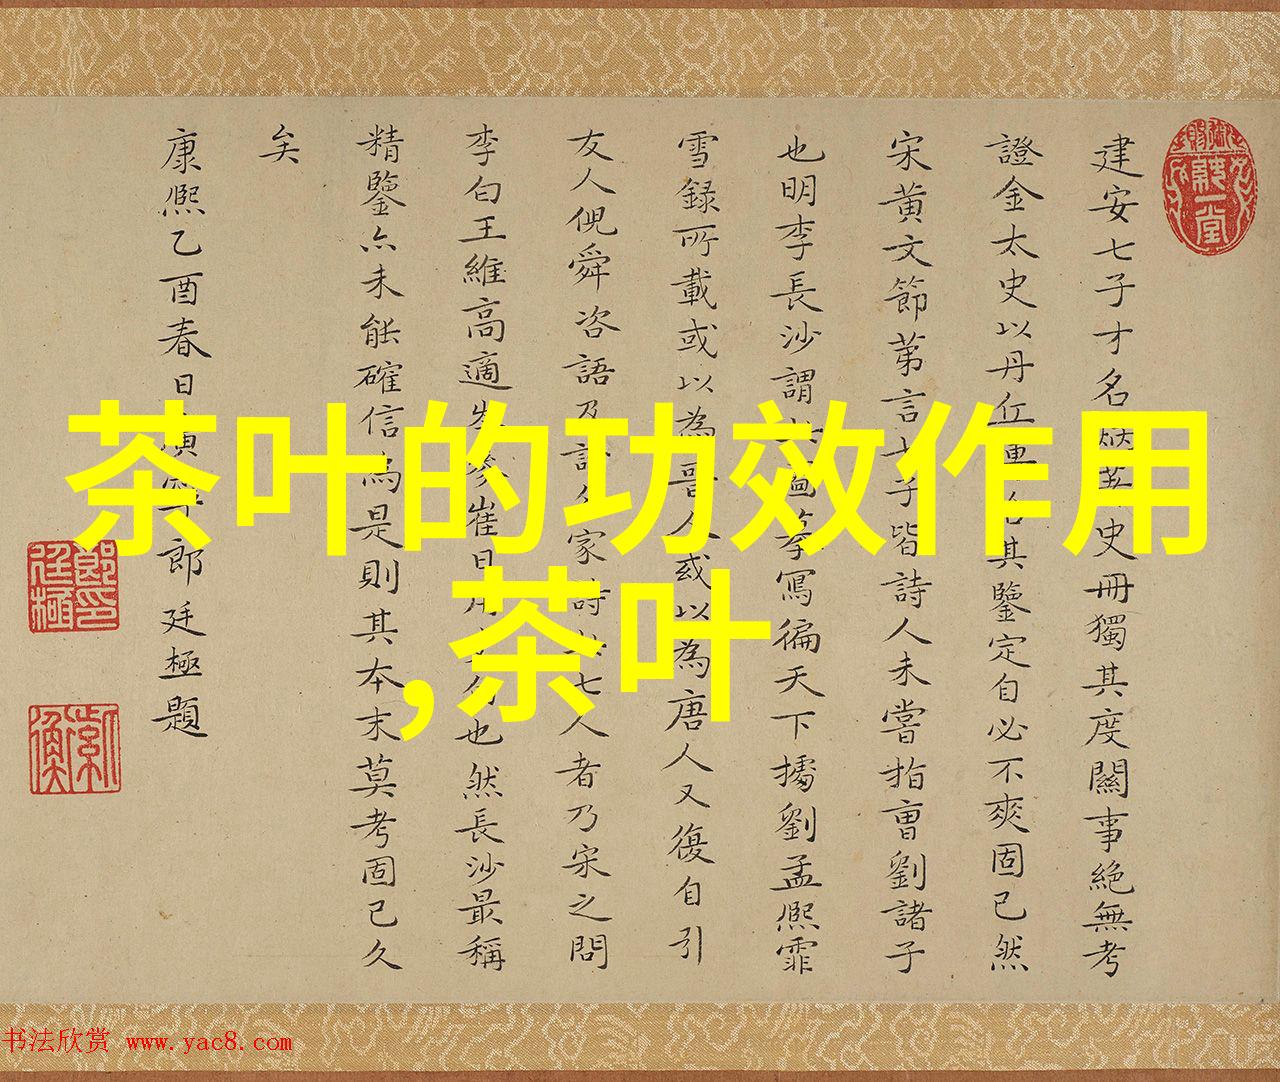 建安七子才名㷋史冊獨其度關事絕無考
證金太史以丹丘其鑒定自必不爽固已然
宋黃文節第言七子皆詩人未嘗指曹劉諸子
也明李長沙謂寫徧天下據劉孟熙霏
雪録所載或以為晉人或以為唐人又復自引
友人倪舜咨語及家詩七人者乃宋之問
李白王維高適岑參崔日用也然長沙最稱
精鑒亦未能確信為是則其本末莫考固已久
矣
康熙乙酉春日郎廷極題
茶叶的功效作用
,茶叶
书法欣赏 www.yac8.com